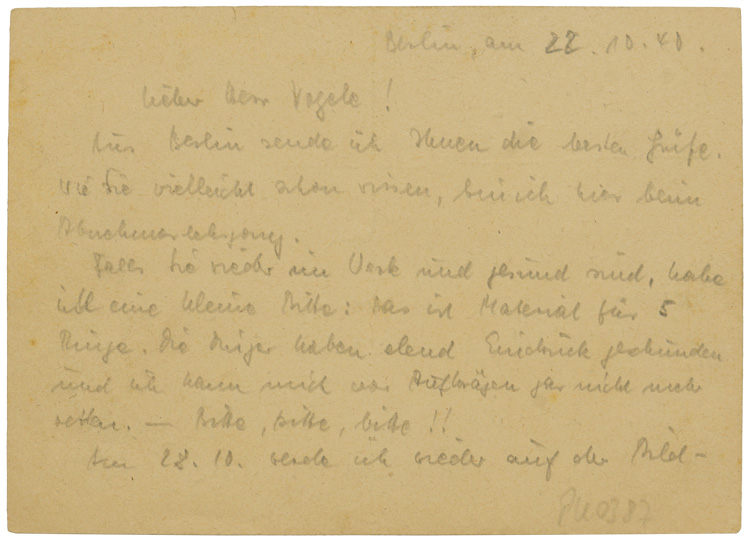 Berlin, am 22.10.40.
Lieber Herr Vogele!
Aus Berlin sende ich Ihnen die besten Grüße.
Wie Sie vielleicht schon wissen, bin ich hier beim
Abnehmerlehrgang.
Falls Sie wieder im Werk und gesund sind, habe
ich eine kleine Bitte: Das ist Material für 5
Ringe. Die Dinger haben elend Eindruck geschunden
und ich kann mich vor Aufträgen gar nicht mehr
retten. — Bitte, bitte, bitte!!
Am 28.10. werde ich wieder auf der Bild-